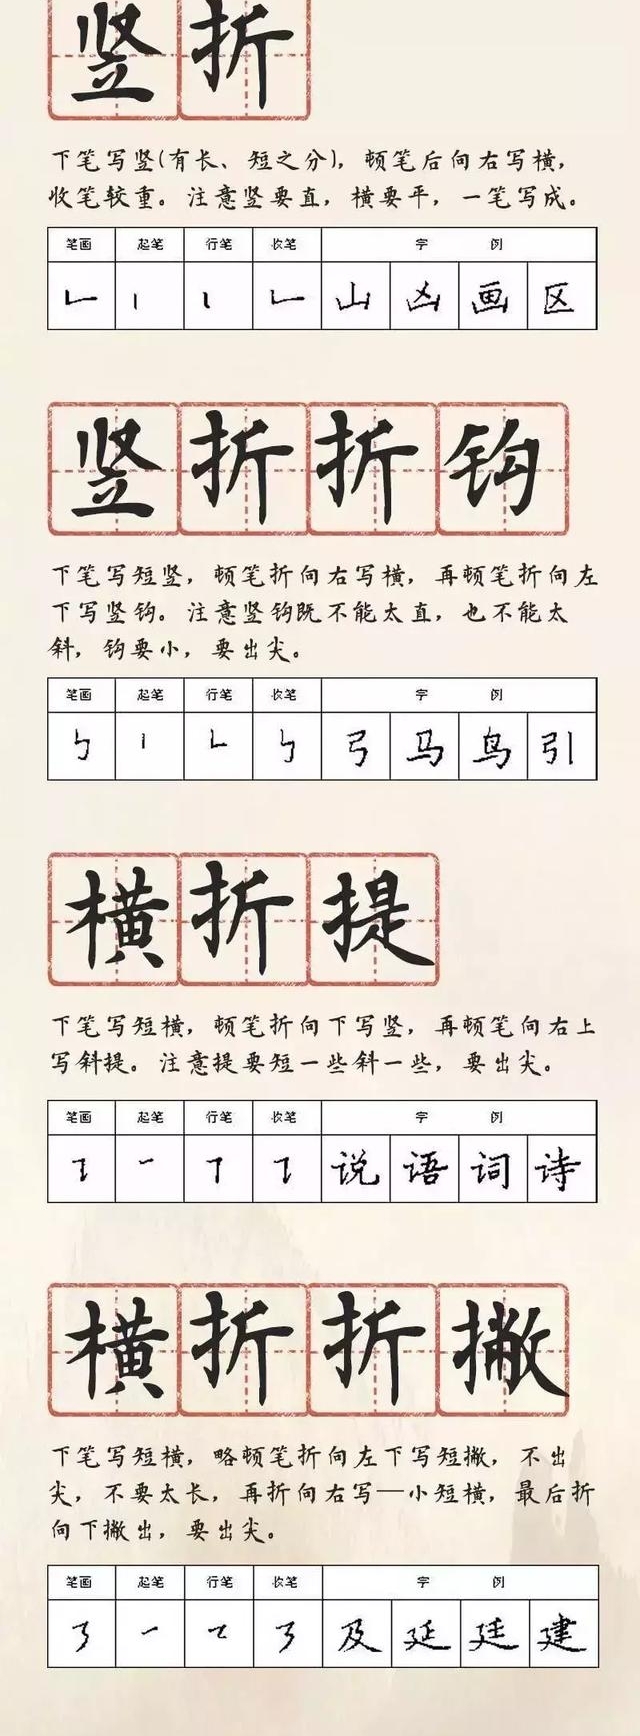 竖折
下笔写竖(有长、短之分)，顿笔后向右写横，
收笔较重。注意竖要直，横要平，一笔写成。
笔画 起笔 行笔 收笔 字 例
𠃊 丨 丨 𠃊 山 凶 画 区
竖折折钩
下笔写短竖，顿笔折向右写横，再顿笔折向左
下写竖钩。注意竖钩既不能太直，也不能太
斜，钩要小，要出尖。
笔画 起笔 行笔 收笔 字 例
㇉ 丨 𠃊 ㇉ 弓 马 鸟 引
横折提
下笔写短横，顿笔折向下写竖，再顿笔向右上
写斜提。注意提要短一些斜一些，要出尖。
笔画 起笔 行笔 收笔 字 例
㇊ 一 𠃍 ㇊ 说 语 词 诗
横折折撇
下笔写短横，略顿笔折向左下写短撇，不出
尖，不要太长，再折向右写一小短横，最后折
向下撇出，要出尖。
笔画 起笔 行笔 收笔 字 例
㇋ 一 ㇋ 及 延 廷 建